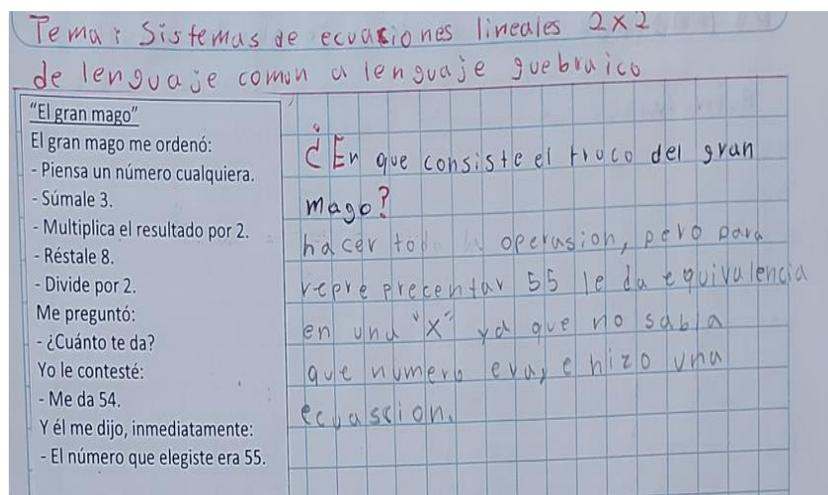 Tema: Sistemas de ecuasiones lineales 2x2
de lenguaje comun a lenguaje guebraico
"El gran mago"
El gran mago me ordenó:
- Piensa un número cualquiera.
- Súmale 3.
- Multiplica el resultado por 2.
- Réstale 8.
- Divide por 2.
Me preguntó:
- ¿Cuánto te da?
Yo le contesté:
- Me da 54.
Y él me dijo, inmediatamente:
- El número que elegiste era 55.
¿En que consiste el truco del gran
mago?
hacer operasion, pero para
repre precentar 55 le da equivalencia
en una "x" ya que no sabia
que numero era, e hizo una
ecuascion.